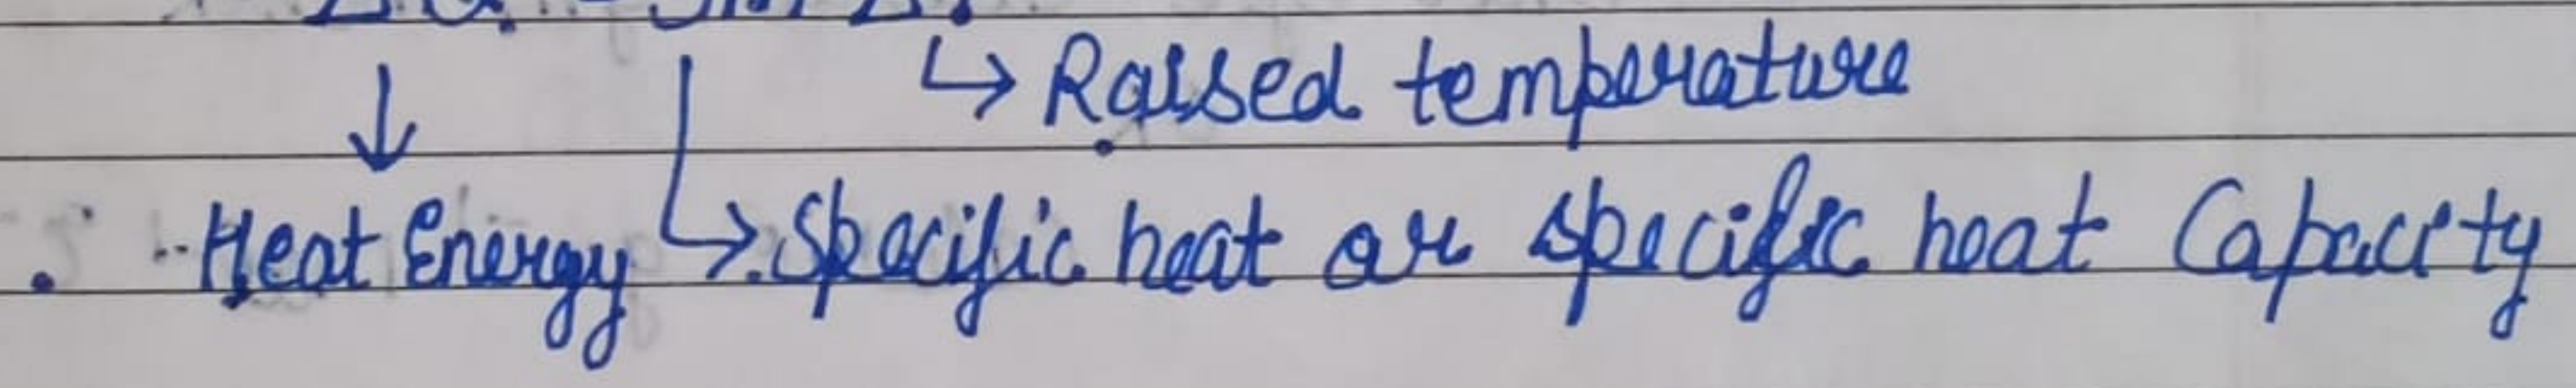 ↳ Raised temperature
Heat Energy ↳ Specific heat or specific heat Capacity